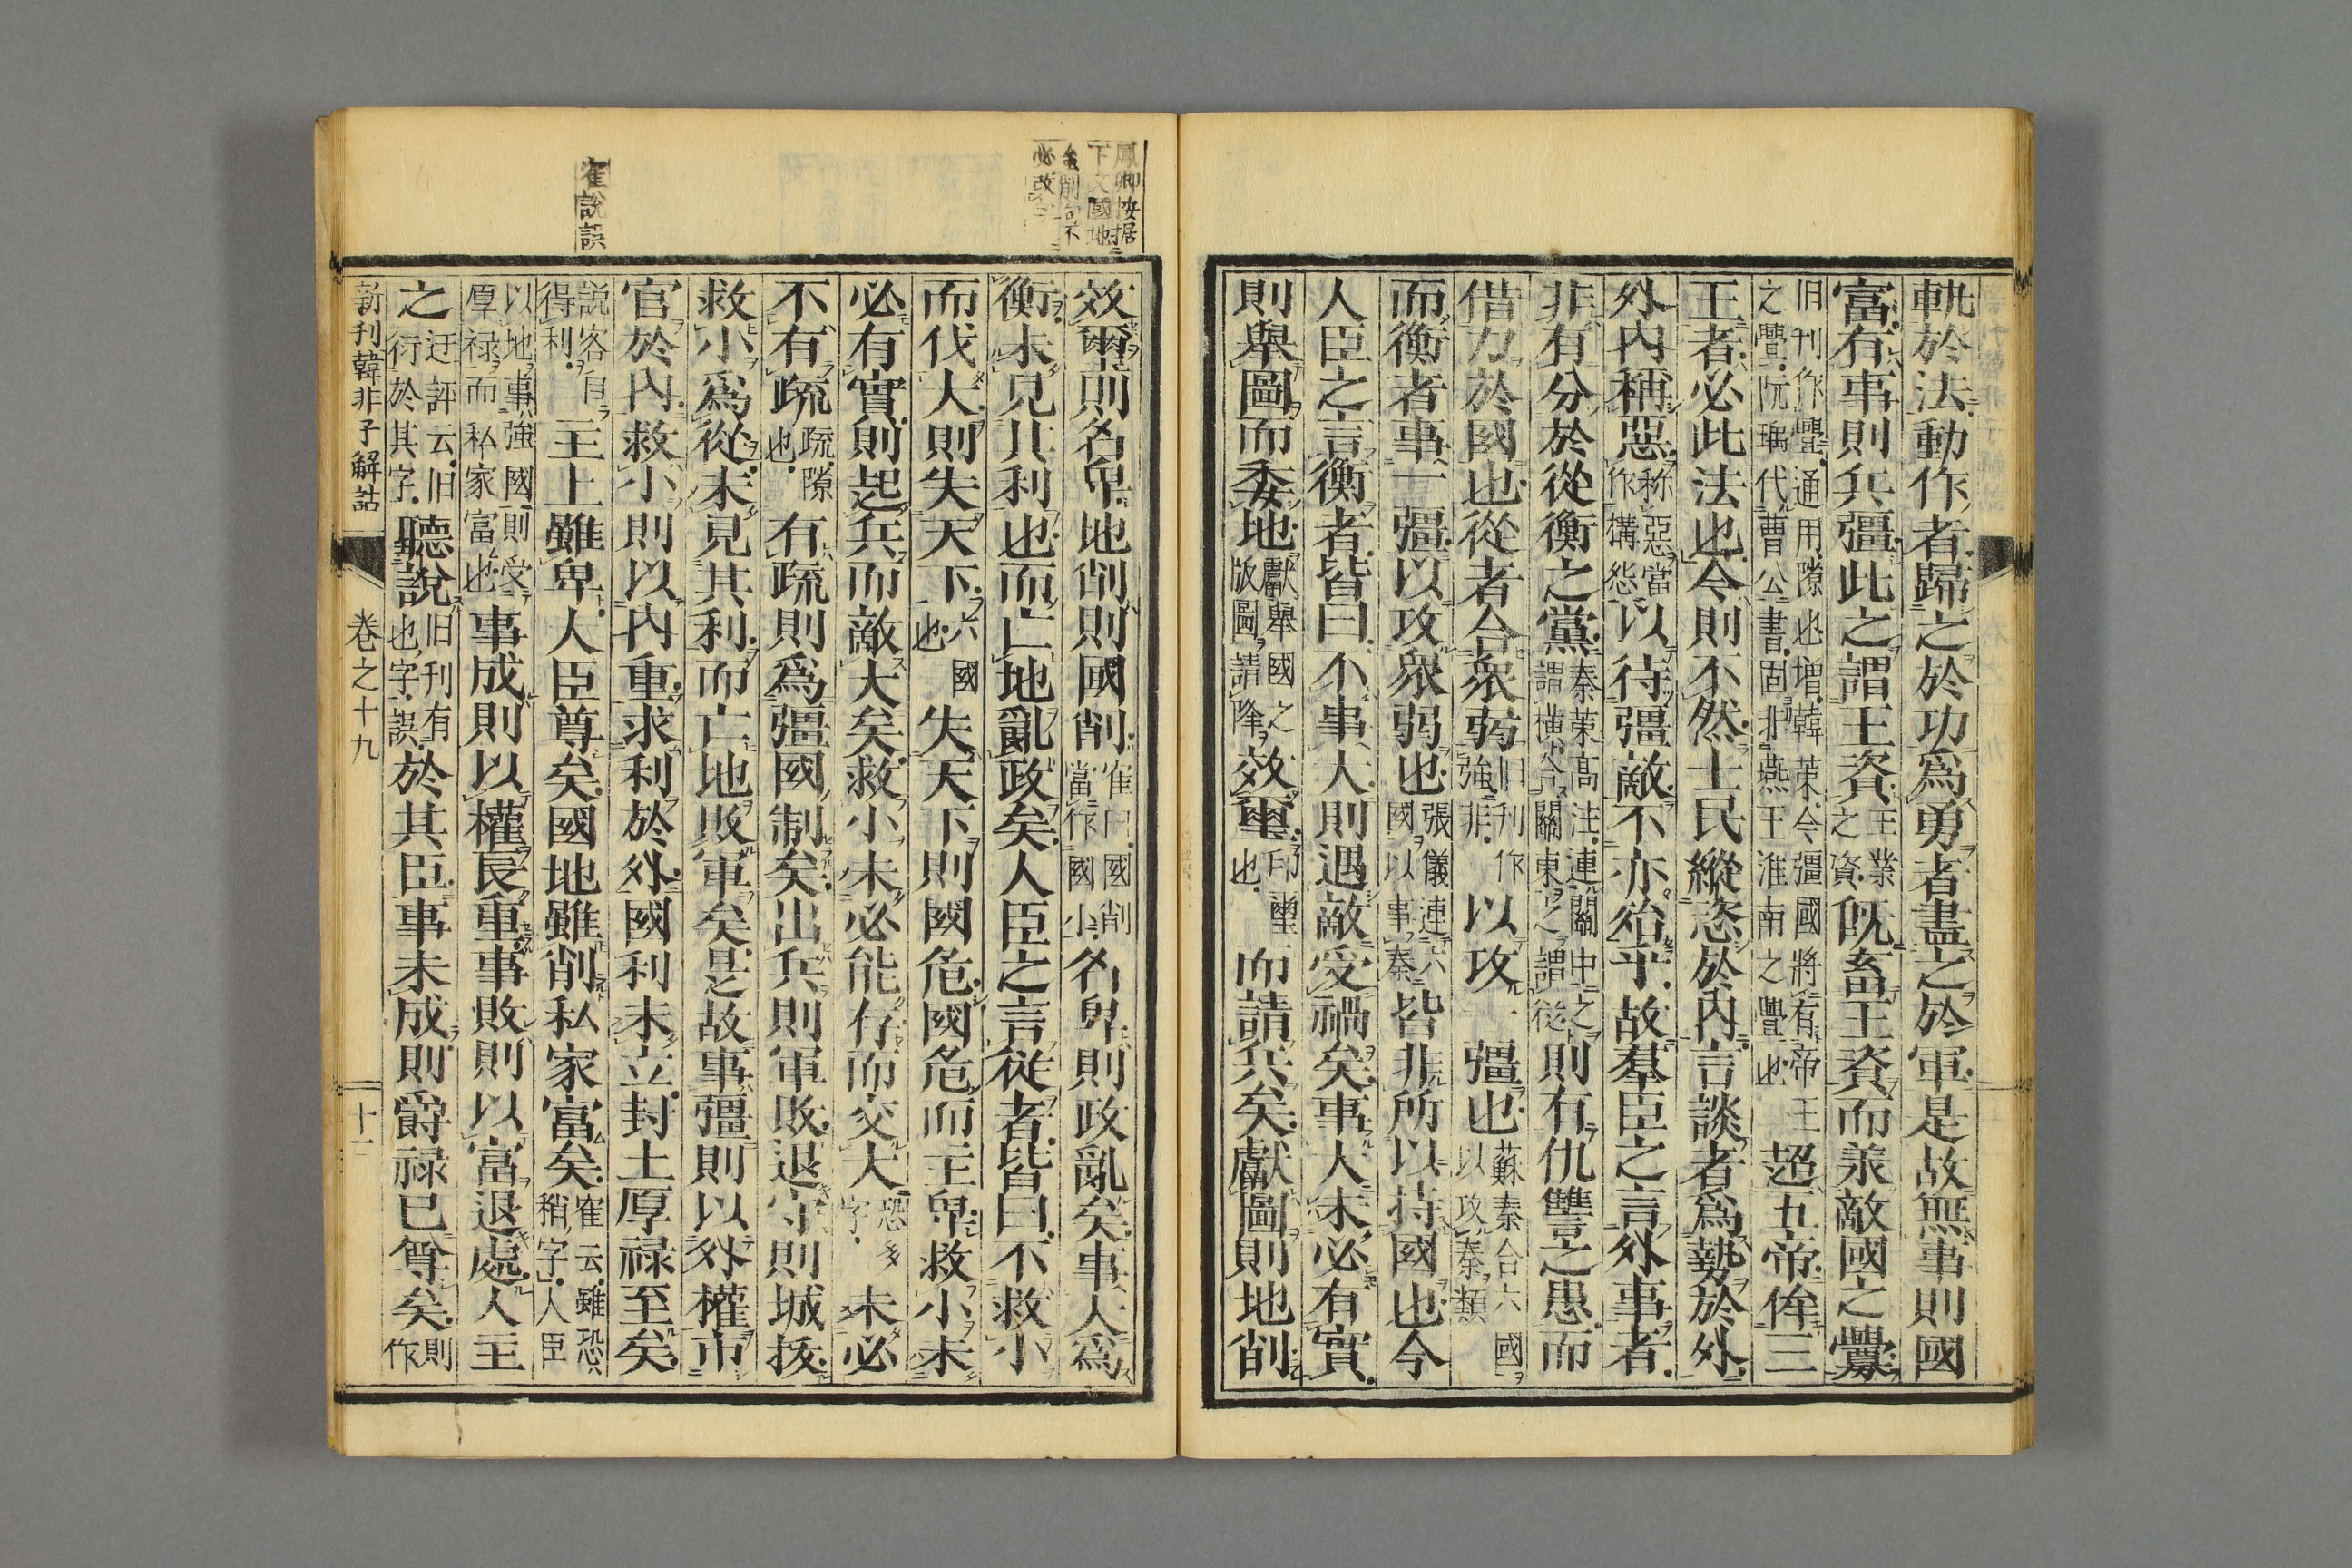 軌於法動作者歸之於功爲勇者盡之於軍是故無事則國
富有事則兵彊此之謂王資王業之資既畜王資而羨敵國之釁
旧刊作釁通用隙也増韓策今彊國將有帝王之釁阮瑀代曹公書固非燕王淮南之釁也超五帝侔三
王者必此法也今則不然士民縱恣於內言談者爲勢於外
外內稱惡称惡當作構怨以待彊敵不亦殆乎故羣臣之言外事者
非有分於從衡之黨秦策高注連關中之謂横合關東之謂從則有仇讐之患而
借力於國也從者合衆弱旧刊作強非以攻一彊也蘇秦合六國以攻秦類
而衡者事一彊以攻衆弱也張儀連六國以事秦皆非所以持國也今
人臣之言衡者皆曰不事大則遇敵受禍矣事大未必有實
則舉圖而委地獻舉國之版圖請降效璽印璽也而請兵矣獻圖則地削
鳳卿按据下文國地雖削句不必改字
效璽則名卑地削則國削崔曰國削當作國小名卑則政亂矣事大爲
衡未見其利也而亡地亂政矣人臣之言從者皆曰不救小
而伐大則失天下六國也失天下則國危國危而主卑救小未
必有實則起兵而敵大矣救小未必能存而交大恐多字未必
不有疏疏隙也有疏則爲彊國制矣出兵則軍敗退守則城拔
救小爲從未見其利而亡地敗軍矣是故事彊則以外權市
官於內救小則以內重求利於外國利未立封土厚禄至矣
崔説誤
説客自得利主上雖卑人臣尊矣國地雖削私家富矣崔云雖恐稍字人臣
以地事強國則受厚禄而私家富也事成則以權長重事敗則以富退處人主
之迂評云旧衍於其字聽說旧刊有也字誤於其臣事未成則爵禄已尊矣則作
新刊韓非子解詁 卷之十九 十一